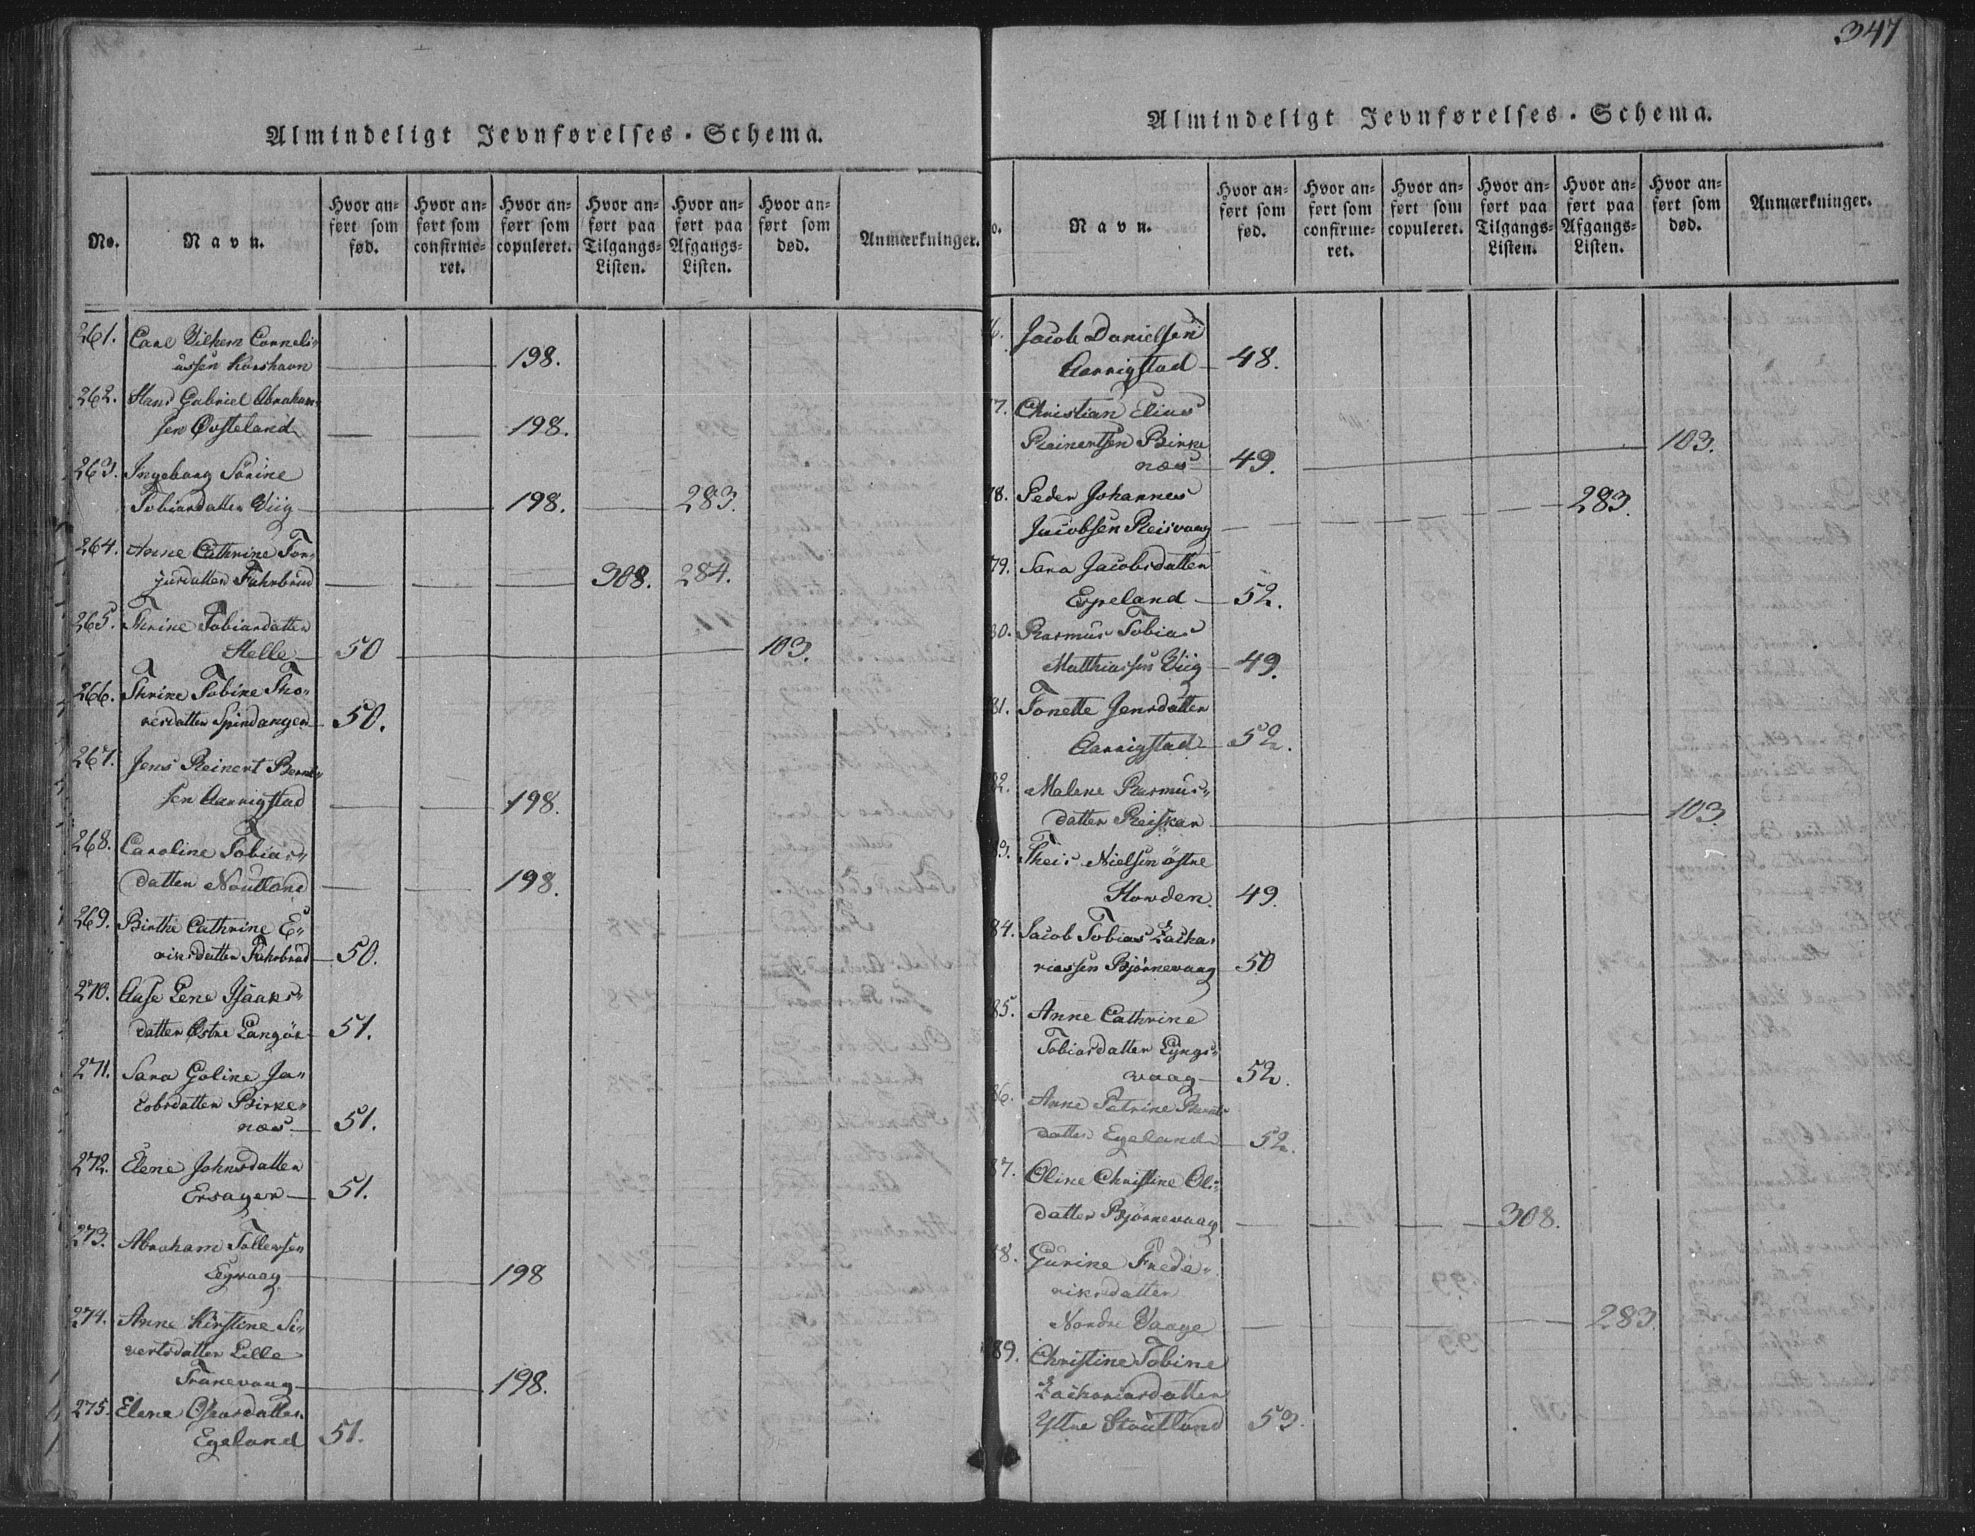 347
Almindeligt Jevnførelses-Schema.
No.
Navn.
Hvor anført som fød.
Hvor anført som confirmeret.
Hvor anført som copuleret.
Hvor anført paa Tilgangs-Listen.
Hvor anført paa Afgangs-Listen.
Hvor anført som død.
Anmærkninger.
261. Carl Vilhem Corneli-
ussen Korshavn 198.
262. Hans Gabriel Abraham-
sen Øvsteland 198.
263. Ingeborg Sørine
Tobiasdatter Viig 198. 283.
264. Anne Cathrine Tor-
jusdatter Fuhrbrud 308. 284.
265. Thrine Tobiasdatter
Helle 50 103.
266. Thrine Tobine Tho-
resdatter Spindangen 50.
267. Jens Reinert Bernt-
sen Aarrigstad 198.
268. Caroline Tobias-
datter Noutland 198.
269. Birthe Cathrine E-
riksdatter Fuhrbrud 50.
270. Aase Lene Isaaks-
datter Østre Langøe 51.
271. Sara Goline Ja-
cobsdatter Birke-
næs 51.
272. Elene Johnsdatter
Ersager 51.
273. Abraham Tollevsen
Egvaag 198
274. Anne Kirstine Si-
vertsdatter Lille
Tranevaag 198.
275. Elene Osaosdatter
Egeland 51.
Almindeligt Jevnførelses-Schema.
o.
Navn.
Hvor anført som fød.
Hvor anført som confirmeret.
Hvor anført som copuleret.
Hvor anført paa Tilgangs-Listen.
Hvor anført paa Afgangs-Listen.
Hvor anført som død.
Anmærkninger.
6. Jacob Danielsen
Aarrigstad 48.
7. Christian Elias
Reinertsen Birke
næs 49. 103.
78. Peder Johannes
Jacobsen Reisvaag 283.
79. Sara Jacobsdatter
Espeland 52.
80. Rasmus Tobias
Matthiassen Viig 49.
81. Tonette Jensdatter
Aarrigstad 52.
82. Malene Rasmus-
datter Reiskar 103
83. Theis Nielsen østre
Howden 49.
84. Jacob Tobias Zacha-
riassen Bjørnevaag 50
85. Anne Cathrine
Tobiasdatter Lyngs-
vaag 52.
86. Anne Petrine Bernts
datter Egeland 52.
87. Oline Christine Ols-
datter Bjørnevaag 308.
88. Gurine Frede-
riksdatter
Nordre Vaage 283.
89. Christine Tobine
Zachariasdatter
Yttre Stoutland 53.